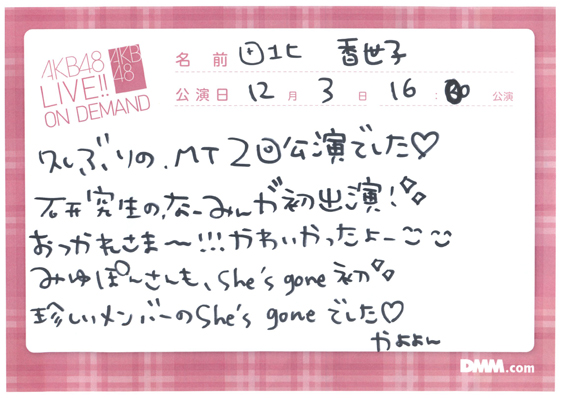 AKB48
LIVE!!
ON DEMAND
AKB
48
名前 田北 香世子
公演日 12月 3日 16:00 公演
久しぶりの、MT 2回公演でした♡
研究生の、なーみんが初出演!
おつかれさま〜!!!かわいかったよー
みゆぽんさんも、She's gone 初
珍しいメンバーのShe's gone でした♡
かよよん
DMM.com